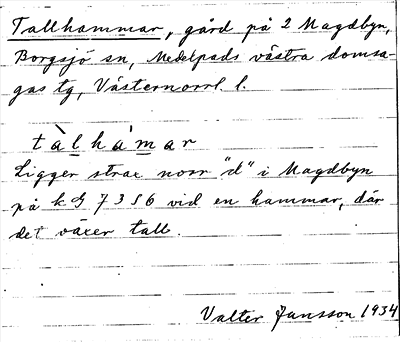 Tallhammar, gård på 2 Magdbyn,
Borgsjö sn, Medelpads västra domsa-
gas tg, Västernorrl. l.
tàlhámar
Ligger strax norr "d" i Magdbyn
på k G 7356 vid en hammar, där
det växer tall.
Valter Jansson 1934